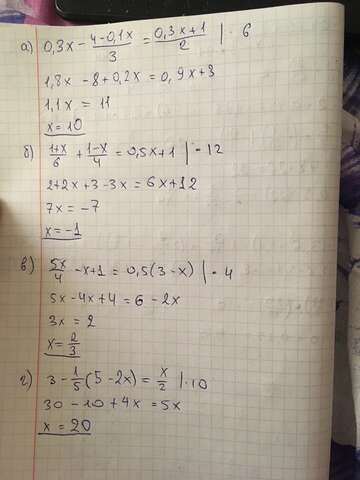 а) 0,3x - (4-0,1x)/3 = (0,3x+1)/2 | · 6
1,8x - 8+0,2x = 0,9x+3
1,1x = 11
x=10
б) (1+x)/6 + (1-x)/4 = 0,5x+1 | · 12
2+2x+3-3x = 6x+12
7x = -7
x=-1
в) 5x/4 -x+1 = 0,5(3-x) | · 4
5x-4x+4 = 6-2x
3x = 2
x= 2/3
г) 3 - 1/5(5-2x) = x/2 | · 10
30-10+4x = 5x
x = 20